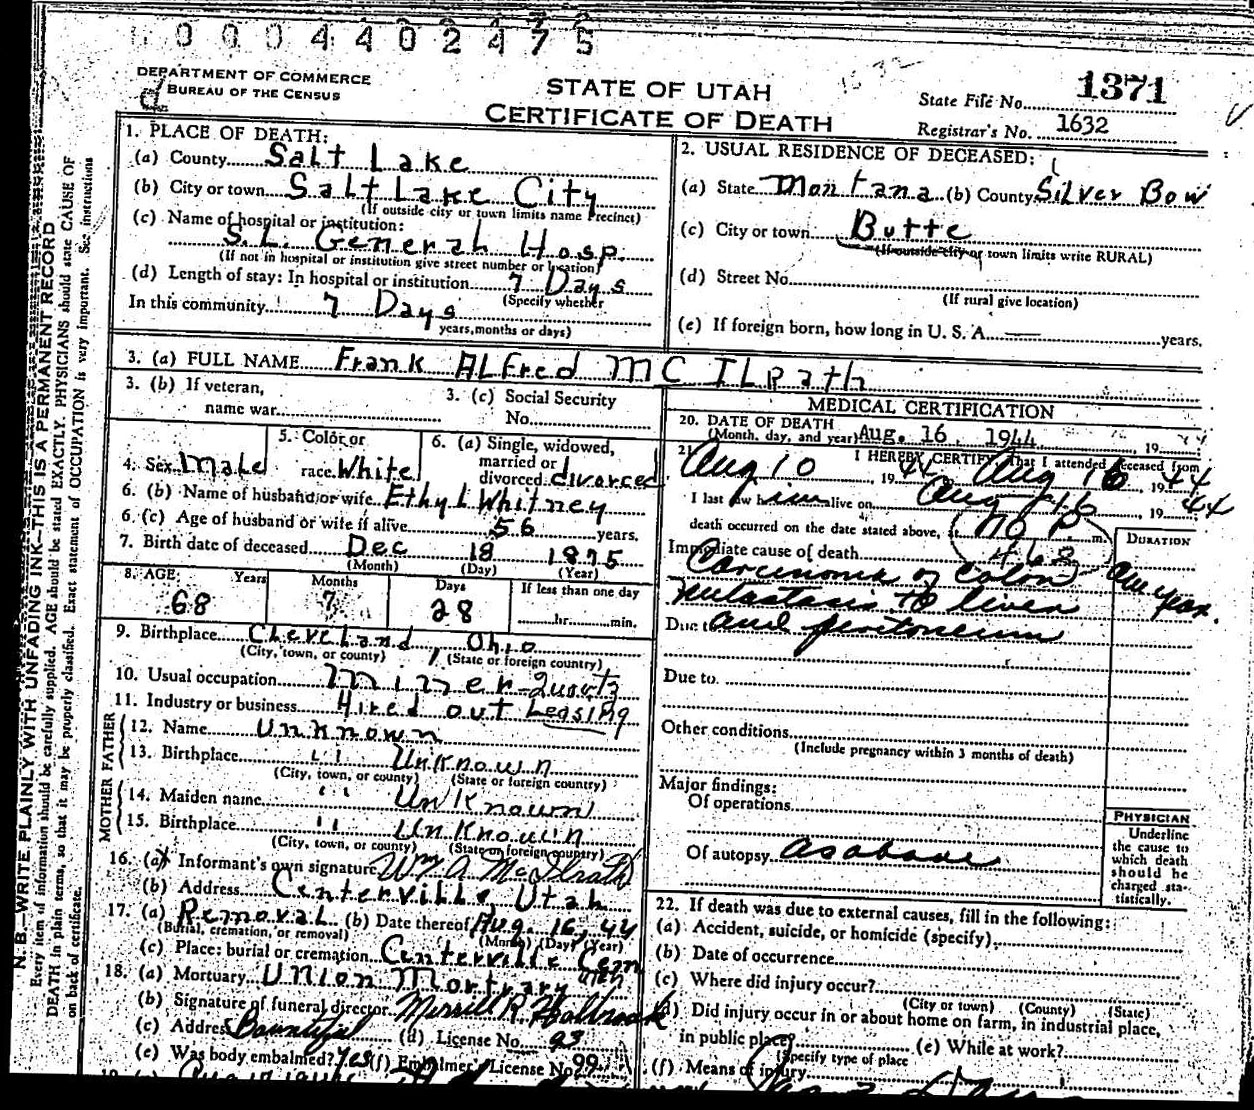 0004402475
DEPARTMENT OF COMMERCE
BUREAU OF THE CENSUS
STATE OF UTAH
CERTIFICATE OF DEATH
1632
State File No. 1371
Registrar's No. 1632
N. B.—WRITE PLAINLY WITH UNFADING INK—THIS IS A PERMANENT RECORD
Every item of information should be carefully supplied. AGE should be stated EXACTLY. PHYSICIANS should state CAUSE OF
DEATH in plain terms, so that it may be properly classified. Exact statement of OCCUPATION is very important. See instructions
on back of certificate.
1. PLACE OF DEATH:
(a) County Salt Lake
(b) City or town Salt Lake City
(If outside city or town limits name Precinct)
(c) Name of hospital or institution:
S. L. General Hosp.
(If not in hospital or institution give street number or location)
(d) Length of stay: In hospital or institution 7 Days
(Specify whether
In this community 7 Days
years, months or days)
2. USUAL RESIDENCE OF DECEASED:
(a) State Montana (b) County Silver Bow
(c) City or town Butte
(If outside city or town limits write RURAL)
(d) Street No.
(If rural give location)
(e) If foreign born, how long in U. S. A. years.
3. (a) FULL NAME Frank ALFred MC ILRath
3. (b) If veteran,
name war
3. (c) Social Security
No.
4. Sex Male
5. Color or
race White
6. (a) Single, widowed,
married or
divorced divorced
6. (b) Name of husband or wife Ethyl Whitney
6. (c) Age of husband or wife if alive 56 years.
7. Birth date of deceased Dec 18 1875
(Month) (Day) (Year)
8. AGE: Years Months Days If less than one day
68 7 28 hr. min.
9. Birthplace Cleveland, Ohio
(City, town, or county) (State or foreign country)
10. Usual occupation Miner-Quartz
11. Industry or business Hired out Leasing
FATHER
12. Name Unknown
13. Birthplace " Unknown
(City, town, or county) (State or foreign country)
MOTHER
14. Maiden name " Unknown
15. Birthplace " Unknown
(City, town, or county) (State or foreign country)
16. (a) Informant's own signature Wm A. McIlrath
(b) Address Centerville, Utah
17. (a) Removal (b) Date thereof Aug. 16, 44
(Burial, cremation, or removal) (Month) (Day) (Year)
(c) Place: burial or cremation Centerville Cem
18. (a) Mortuary Union Mortuary
(b) Signature of funeral director Merrill R Holbrook
(c) Address Bountiful (d) License No. 93
(e) Was body embalmed? Yes (f) Embalmer's License No. 99
MEDICAL CERTIFICATION
20. DATE OF DEATH
(Month, day, and year) Aug. 16, 1944 19
21. I HEREBY CERTIFY That I attended deceased from
Aug 10, 19 44 Aug 16 19 44
I last saw him alive on Aug 16, 19 44
death occurred on the date stated above, at m.
DURATION
Immediate cause of death
Carcinoma of colon one year.
metastasis to liver
Due to and peritoneum
Due to
Other conditions
(Include pregnancy within 3 months of death)
Major findings:
Of operations
Of autopsy as above
PHYSICIAN
Underline
the cause to
which death
should be
charged sta-
tistically.
22. If death was due to external causes, fill in the following:
(a) Accident, suicide, or homicide (specify)
(b) Date of occurrence
(c) Where did injury occur?
(City or town) (County) (State)
(d) Did injury occur in or about home on farm, in industrial place,
in public place? (e) While at work?
(Specify type of place
(f) Means of injury